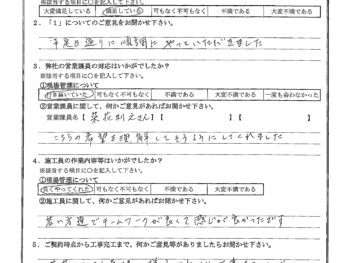 ※該当する項目に○を記入して下さい。
大変満足している 満足している 可も無く不可も無く 不満である 大変不満である
2.「1」についてのご意見をお聞かせ下さい。
予定通りに順調にやっていただきました
3. 弊社の営業課員の対応はいかがでしたか?
※該当する項目に○を記入して下さい。
①現場管理について
行き届いていた 可もなく不可もなく 不満である 大変不満である 一度も会わなかった
②営業課員に関して、何かご意見があればお聞かせ下さい。
営業課員名【 さん】【 】【 】
こちらの希望を理解してそうようにしてくれました
4. 施工員の作業内容等はいかがでしたか?
※該当する項目に○を記入して下さい。
①現場管理について
良くやってくれた 可もなく不可もなく 不満である 大変不満である
②施工員に関して、何かご意見があればお聞かせ下さい。
若い方達でチームワークが良くて感じが良かったです
5. ご契約時点から工事完工まで、何かご意見等がありましたらお聞かせ下さい。